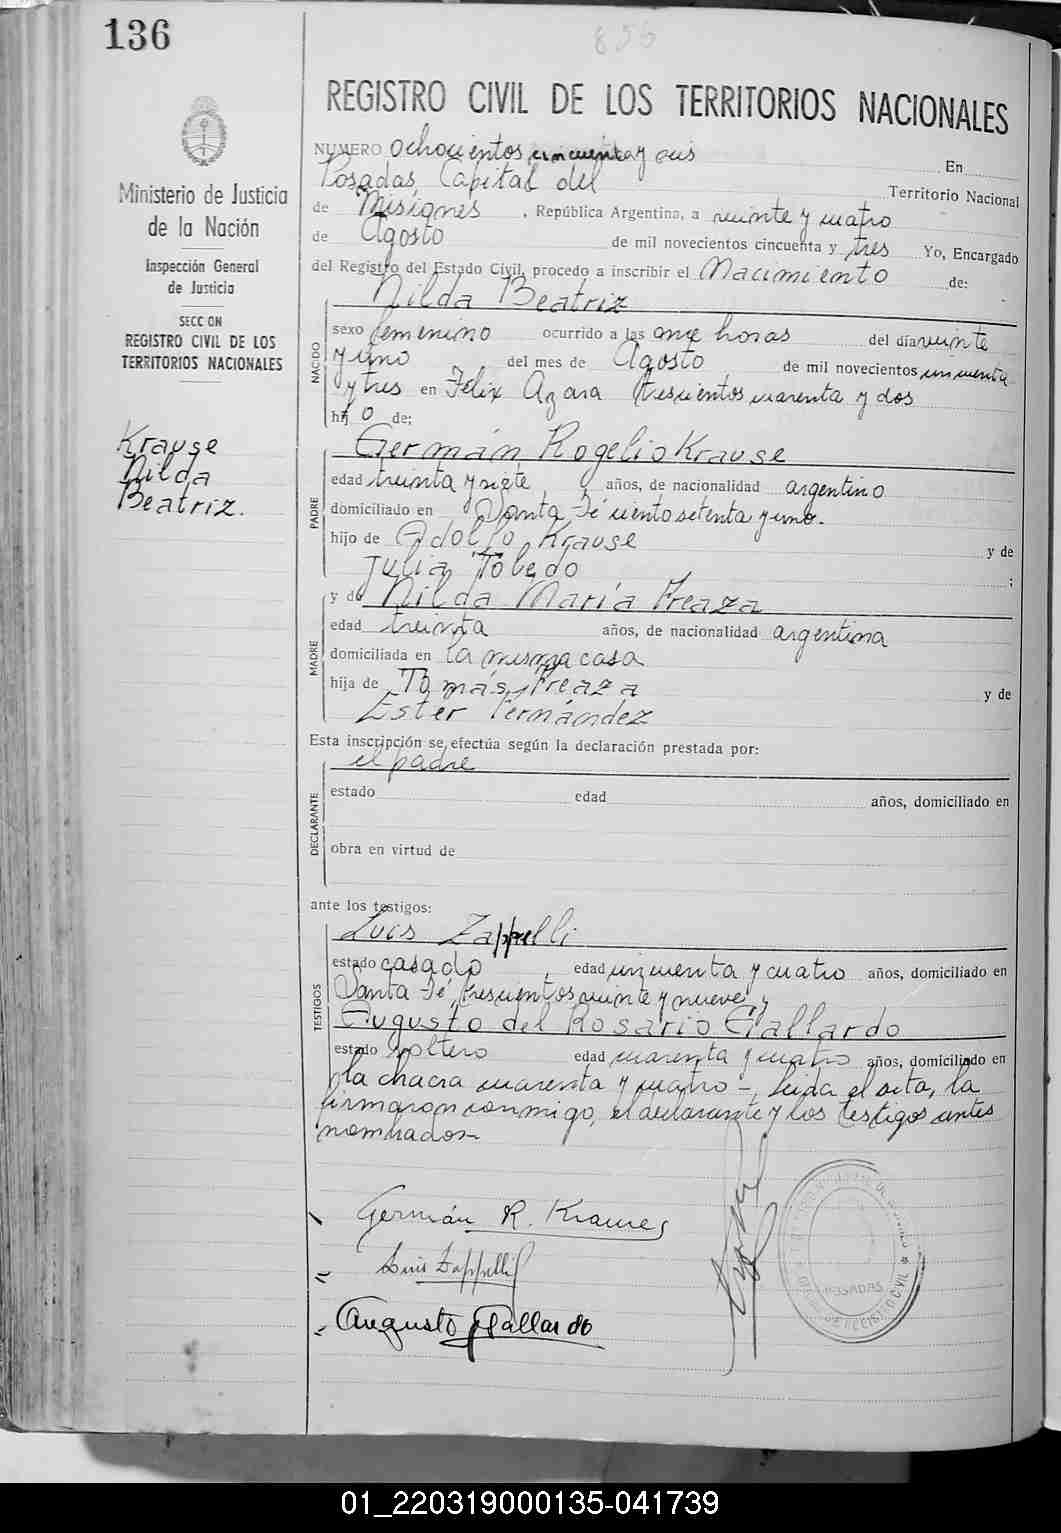 136
856
REGISTRO CIVIL DE LOS TERRITORIOS NACIONALES
Ministerio de Justicia
de la Nación
Inspección General
de Justicia
SECCION
REGISTRO CIVIL DE LOS
TERRITORIOS NACIONALES
Krause
Nilda
Beatriz.
NUMERO ochocientos cincuenta y seis En
Posadas, Capital del Territorio Nacional
de Misiones, República Argentina, a veinte y cuatro
de Agosto de mil novecientos cincuenta y tres Yo, Encargado
del Registro del Estado Civil, procedo a inscribir el Nacimiento de:
NACIDO
Nilda Beatriz
sexo femenino ocurrido a las once horas del día veinte
y uno del mes de Agosto, de mil novecientos cincuenta
y tres en Félix Azara trescientos cuarenta y dos
hijo de;
PADRE
Germán Rogelio Krause
edad treinta y siete años, de nacionalidad argentino
domiciliado en Santa Fé ciento setenta y uno.
hijo de Adolfo Krause y de
Julia Toledo ;
MADRE
y de Nilda María Preaza
edad treinta años, de nacionalidad argentina
domiciliada en la misma casa
hija de Tomás Preaza y de
Ester Fernández
Esta inscripción se efectúa según la declaración prestada por:
DECLARANTE
el padre
estado edad años, domiciliado en
obra en virtud de
ante los testigos:
TESTIGOS
Luis Zappelli
estado casado, edad cincuenta y cuatro años, domiciliado en
Santa Fé, trescientos veinte y nueve, y
Augusto del Rosario Gallardo
estado soltero edad cuarenta y cuatro años, domiciliado en
la chacra cuarenta y cuatro -, leida el acta, la
firmaron conmigo, el declarante y los testigos antes
nombrados-
Germán R. Krause
Luis Zappelli
Augusto Gallardo
POSADAS
01_220319000135-041739